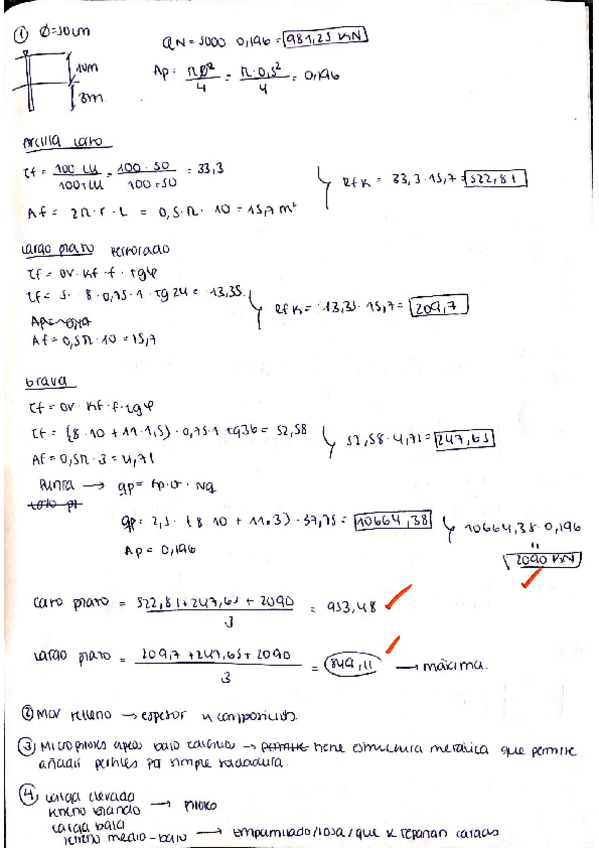 ① Ø=50cm
QN = 5000 · 0,196 = 981,25 KN
10m
3m
Ap: π·Ø²/4 = π·0,5²/4 = 0,196
Arcilla corto
τf = 100 cu/100+cu = 100·50/100+50 = 33,3
Af = 2π·r·L = 0,5·π·10 = 15,7 m²
Rfk = 33,3·15,7 = 522,81
Largo plazo perforado
τf = σv·kf·f·tgφ
τf = 5·8·0,75·1·tg24 = 13,35
Af = 0,5π·10 = 15,7
Rfk = 13,35·15,7 = 209,7
Grava
τf = σv·kf·f·tgφ
τf = (8·10 + 11·1,5)·0,75·1 tg36 = 52,58
Af = 0,5π·3 = 4,71
52,58·4,71 = 247,65
Punta → qp = fp·σ·Nq
qp = 2,5·(8·10 + 11·3)·37,75 = 10664,38
Ap = 0,196
10664,38·0,196
"
2090 KN
Corto plazo = 522,81+247,65+2090/3 = 953,48
Largo plazo = 209,7+247,65+2090/3 = 849,11 → máxima.
② Mor relleno → espesor y composición.
③ Micropilotes apeos bajo edificios → tiene estructura metálica que permite
añadir perfiles por simple soldadura.
④ Carga elevada
terreno blando → pilotes
carga baja
terreno medio-bajo → emparrillado/losa/que se repartan cargas